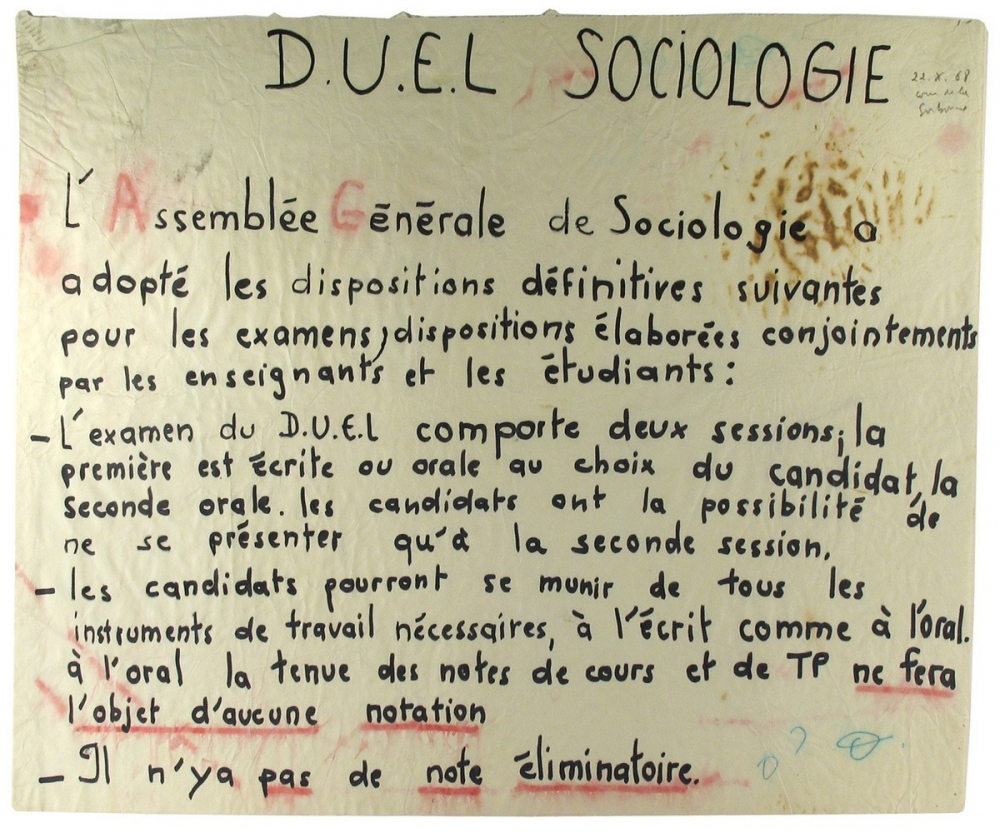 D.U.E.L SOCIOLOGIE
22.X.68
cour de la
Sorbonne
L'Assemblée Générale de Sociologie a
adopté les dispositions définitives suivantes
pour les examens, dispositions élaborées conjointements
par les enseignants et les étudiants :
- L'examen du D.U.E.L comporte deux sessions; la
première est écrite ou orale au choix du candidat, la
seconde orale. les candidats ont la possibilité de
ne se présenter qu'à la seconde session.
- les candidats pourront se munir de tous les
instruments de travail nécessaires, à l'écrit comme à l'oral.
à l'oral la tenue des notes de cours et de TP ne fera
l'objet d'aucune notation
- Il n'ya pas de note éliminatoire.